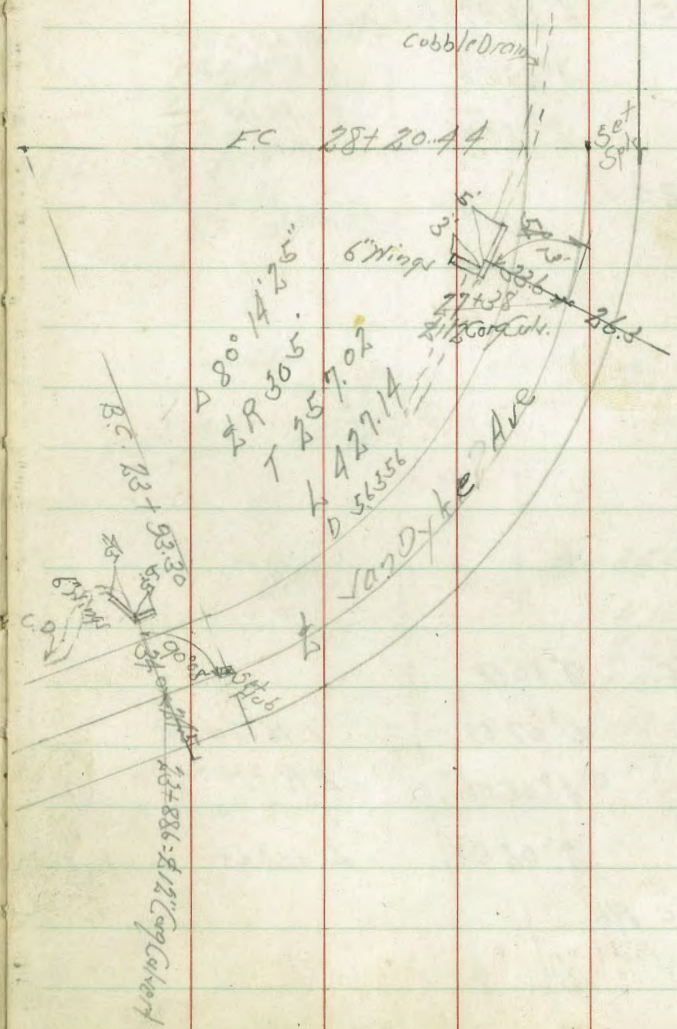 Cobble Drain
E.C. 28+20.44
Set
Spk
5'
3'
6" Wings
33.6
26.3
27+38
℄ 12" Corg Culv.
Δ 80° 14' 25"
℄ R 305'
T 257.02
L 427.14
D 56356
Van Dyke Ave
℄
B.C. 23+93.30
6" Wings
C.D.
90°05'
Set Hub
23+886=℄ 12" Corg Culvert